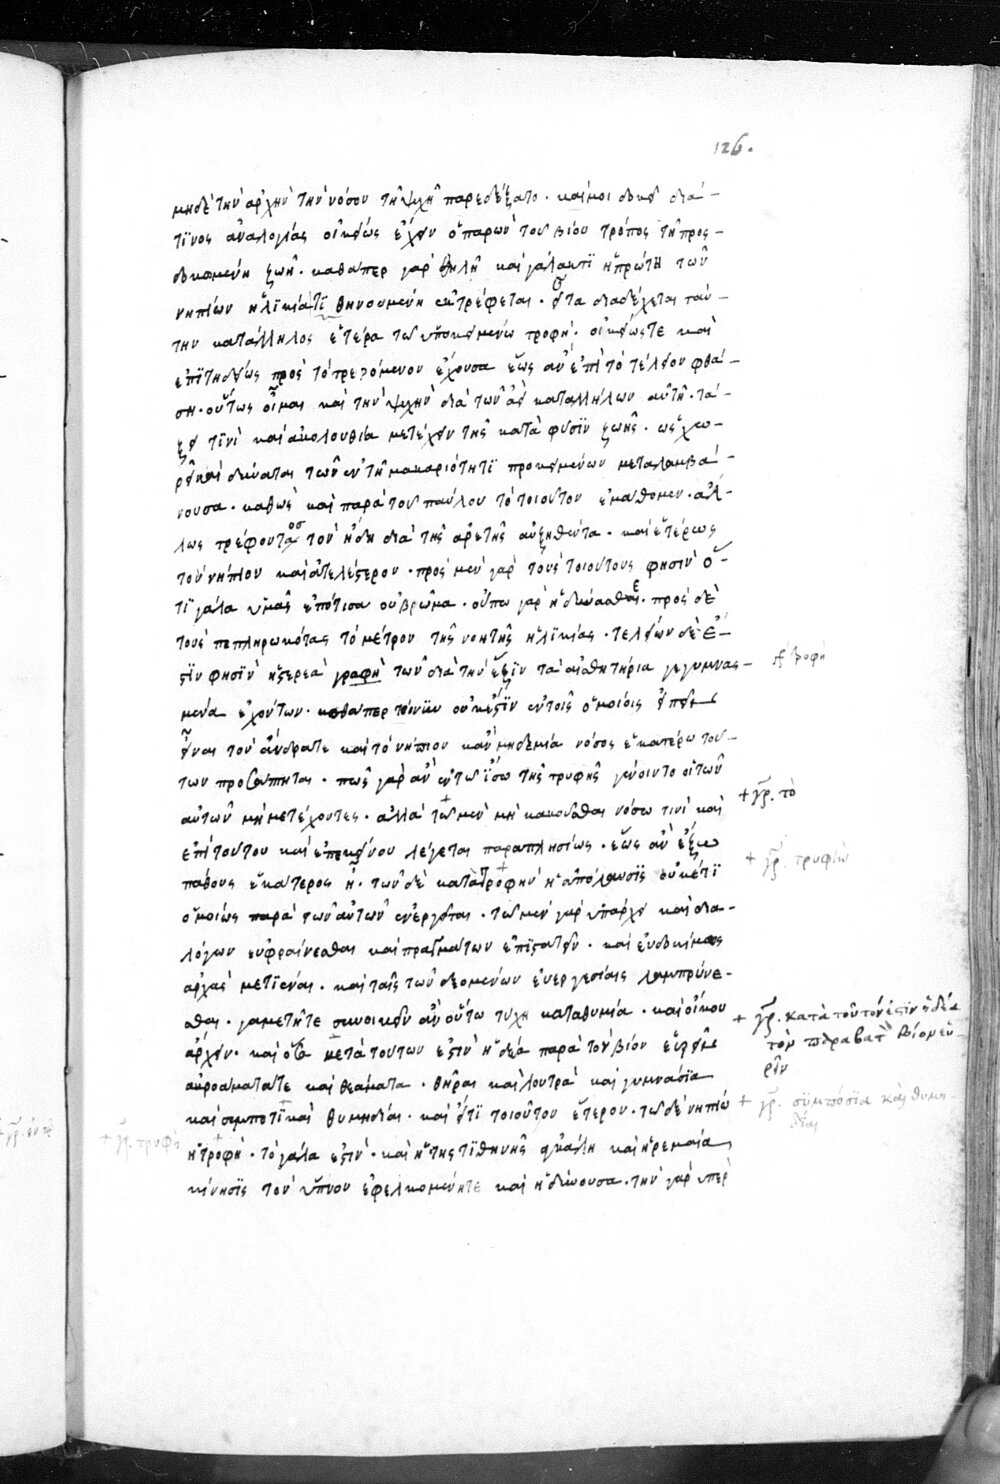 126.
μηδὲ τὴν ἀρχὴν τὴν νόσον τῆ ψυχῆ παρεδέξατο. καί μοι δοκεῖ διά
τινος ἀναλογίας οἰκείως ἔχειν ὁ παρὼν τοῦ βίου τρόπος τῆ προς
δοκωμένη ζωῆ. καθάπερ γὰρ θηλῆ καὶ γάλακτι ἡ πρώτη τῶν
νηπίων ἡλικία τιθηνουμένη ἐκτρέφεται. εἶτα διαδέχεται ταύ
την κατάλληλος ἑτέρα τῶ ὑποκειμένω τροφή. οἰκείως τε καὶ
ἐπιτηδείως πρὸς τὸ τρεφόμενον ἔχουσα ἕως ἂν ἐπὶ τὸ τέλειον φθά
ση. οὕτως οἶμαι καὶ τὴν ψυχὴν διὰ τῶν ἀεὶ καταλλήλων αὐτῆ. τά
ξει τινὶ καὶ ἀκολουθία μετέχειν τῆς κατὰ φύσιν ζωῆς. ὡς χω
ρεῖ καὶ δύναται τῶν ἐν τῆ μακαριότητι προκειμένων μεταλαμβά
νουσα. καθὼς καὶ παρὰ τοῦ παύλου τὸ τοιοῦτον ἐμάθομεν. ἄλ
λως τρέφοντος τὸν ἤδη διὰ τῆς ἀρετῆς αὐξηθέντα. καὶ ἑτέρως
τὸν νήπιον καὶ ἀτελέστερον. πρὸς μὲν γὰρ τοὺς τοιούτους φησὶν ὅ
τι γάλα ὑμᾶς ἐπότισα οὐ βρῶμα. οὔπω γὰρ ἠδύνασθε. πρὸς δὲ
τοὺς πεπληρωκότας τὸ μέτρον τῆς νοητῆς ἡλικίας. τελείων δέ ἐ
στιν φησὶν ἡ στερεὰ γραφὴ τῶν διὰ τὴν ἕξιν τὰ αἰσθητήρια γεγυμνασ
μένα ἐχόντων. καθάπερ τοίνυν οὐκ ἔστιν ἐν τοῖς ὁμοίοις εἰπεῖν
εἶναι τὸν ἄνδρα τε καὶ τὸ νήπιον κἂν μηδεμία νόσος ἑκατέρω τού
των προσάπτηται. πῶς γὰρ ἂν ἐν τῶ ἴσω τῆς τρυφῆς γένοιντο οἱ τῶν
αὐτῶν μὴ μετέχοντες. ἀλλὰ τῶ μὲν μὴ κακοῦσθαι νόσω τινὶ καὶ
ἐπὶ τούτου καὶ ἐπ ἐκείνου λέγεται παραπλησίως. ἕως ἂν ἔξω
πάθους ἑκάτερος ἦ. τῶν δὲ κατὰ τροφὴν ἡ ἀπόλαυσις οὐκέτι
ὁμοίως παρὰ τῶν αὐτῶν ἐνεργεῖται. τῶ μὲν γὰρ ὑπάρχει καὶ διὰ
λόγων εὐφραίνεσθαι καὶ πραγμάτων ἐπιστατεῖν. καὶ εὐδοκίμους
ἀρχὰς μετιέναι. καὶ ταῖς τῶν δεομένων εὐεργεσίαις λαμπρύνε
σθαι. γαμετῆ τε συνοικεῖν ἂν οὕτω τύχη καταθυμία. καὶ οἴκου
ἄρχειν. καὶ ὅσα μετὰ τούτων ἐστὶν ἡδέα παρὰ τὸν βίον εὑρεῖν
ἀκροάματά τε καὶ θεάματα. θῆραι καὶ λουτρὰ καὶ γυμνάσια
καὶ συμποτικαὶ θυμηδίαι. καὶ εἴ τι τοιοῦτον ἕτερον. τῶ δὲ νηπίω
ἡ τροφὴ. τὸ γάλα ἐστὶν. καὶ ἡ τῆς τιθήνης ἀγκάλη καὶ ἠρεμαία
κίνησις τὸν ὕπνον ἐφελκομένη τε καὶ ἡδύνουσα. τὴν γὰρ ὑπὲρ
τροφὴ
+ γρ. τὸ
+ γρ. τρυφὴν
+ γρ. κατὰ τοῦτον ἐστὶν ἡδέα
τὸν βίον εὑ
ρεῖν
+ γρ. συμπόσια καὶ θυμη
δίαι
+ γρ. τρυφὴ